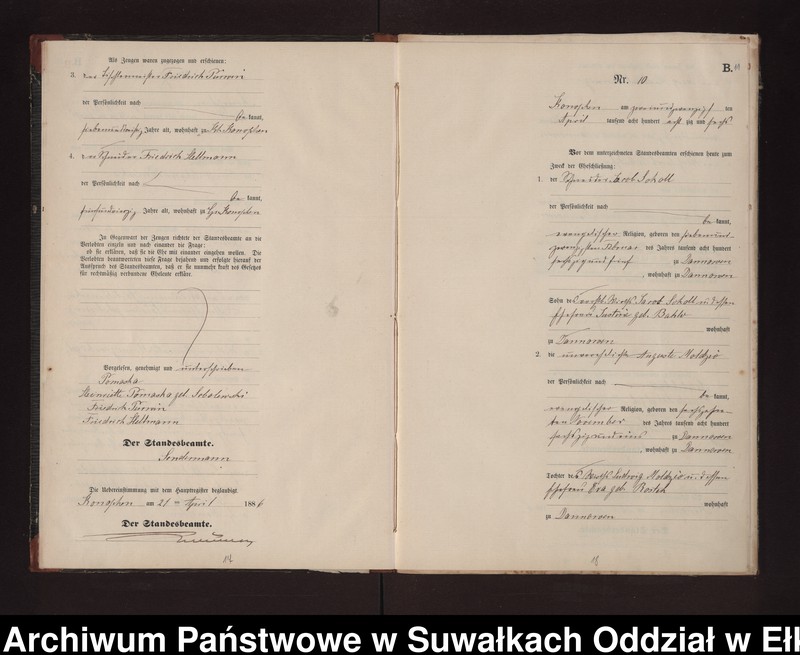 Als Zeugen waren zugezogen und erschienen:
3. der Tischlermeister Friedrich Turowin
der Persönlichkeit nach
be kannt,
Jahre alt, wohnhaft zu Gr. Konopken
4. der Schneider Friedrich Hellmann
der Persönlichkeit nach
be kannt,
Jahre alt, wohnhaft zu Gr. Konopken
In Gegenwart der Zeugen richtete der Standesbeamte an die
Verlobten einzeln und nach einander die Frage:
ob sie erklären, daß sie die Ehe mit einander eingehen wollen. Die
Verlobten beantworteten diese Frage bejahend und erfolgte hierauf der
Ausspruch des Standesbeamten, daß er sie nunmehr kraft des Gesetzes
für rechtmäßig verbundene Eheleute erkläre.
Vorgelesen, genehmigt und unterschrieben
Pomaska
Henriette Pomaska geb. Sobolewski
Friedrich
Friedrich Hellmann
Der Standesbeamte.
Sondermann
Die Uebereinstimmung mit dem Hauptregister beglaubigt
Konopken am 21ten April 1886
Der Standesbeamte.
B.
Nr. 10
Konopken am zweiundzwanzigsten
April tausend acht hundert achtzig und sechs
Vor dem unterzeichneten Standesbeamten erschienen heute zum
Zweck der Eheschließung:
1. der Jacob Scholl
der Persönlichkeit nach
be kannt,
evangelischer Religion, geboren den siebenund-
zwanzigsten Februar des Jahres tausend acht hundert
sechszig und fünf zu Dannowen
, wohnhaft zu Dannowen
Sohn des verst. Wirths Jacob Scholl und dessen
Ehefrau geb.
wohnhaft
zu Dannowen
2. die unverehelichte Auguste Moldzio
der Persönlichkeit nach
be kannt,
evangelischer Religion, geboren den sechszehn-
ten November des Jahres tausend acht hundert
sechszig und eins zu Dannowen
, wohnhaft zu Dannowen
Tochter des Wirths Ludwig Moldzio und dessen
Ehefrau Eva geb.
wohnhaft
zu Dannowen
Archiwum Państwowe w Suwałkach Oddział w Ełk